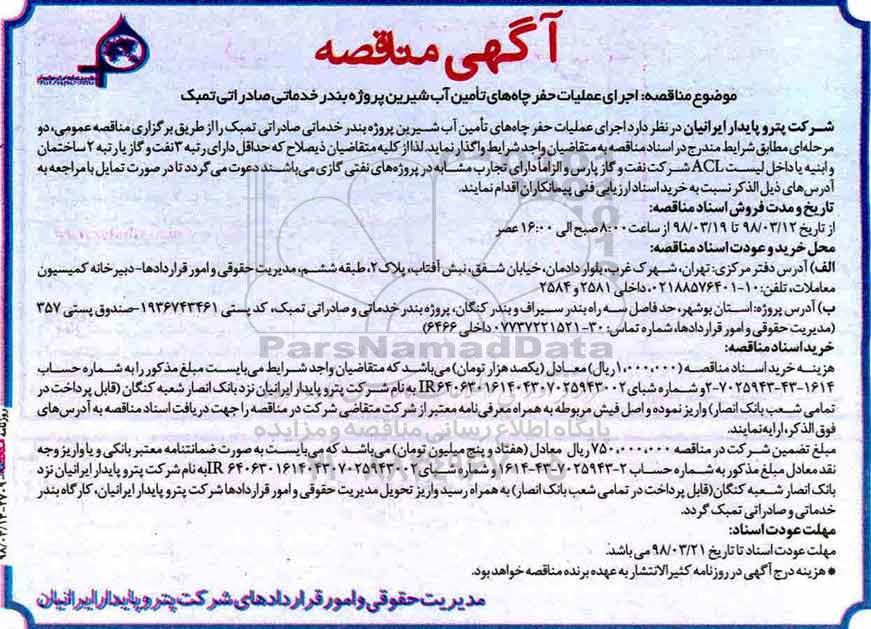 آگهی مناقصه
موضوع مناقصه: اجرای عملیات حفر چاه‌های تأمین آب شیرین پروژه بندر خدماتی صادراتی تمبک
شرکت پترو پایدار ایرانیان در نظر دارد اجرای عملیات حفر چاه‌های تأمین آب شیرین پروژه بندر خدماتی صادراتی تمبک را از طریق برگزاری مناقصه عمومی، دو
مرحله‌ای مطابق شرایط مندرج در اسناد مناقصه به متقاضیان واجد شرایط واگذار نماید. لذا از کلیه متقاضیان ذیصلاح که حداقل دارای رتبه ۳ نفت و گاز یا رتبه ۲ ساختمان
و ابنیه یا داخل لیست ACL شرکت نفت و گاز پارس و الزاماً دارای تجارب مشابه در پروژه‌های نفتی گازی می‌باشند دعوت می گردد تا در صورت تمایل با مراجعه به
آدرس‌های ذیل الذکر نسبت به خرید اسناد ارزیابی فنی پیمانکاران اقدام نمایند.
تاریخ و مدت فروش اسناد مناقصه:
از تاریخ ۹۸/۰۳/۱۲ تا ۹۸/۰۳/۱۹ از ساعت ۸:۰۰ صبح الی ۱۶:۰۰ عصر
محل خرید و عودت اسناد مناقصه:
الف) آدرس دفتر مرکزی: تهران، شهرک غرب، بلوار دادمان، خیابان شفق، نبش آفتاب، پلاک ۲، طبقه ششم، مدیریت حقوقی و امور قراردادها- دبیرخانه کمیسیون
معاملات، تلفن: ۱۰-۰۲۱۸۸۵۷۶۴۰۱، داخلی ۲۵۸۱ و ۲۵۸۴
ب) آدرس پروژه: استان بوشهر، حد فاصل سه راه بندر سیراف و بندر کنگان، پروژه بندر خدماتی و صادراتی تمبک، کد پستی ۱۹۳۶۷۴۳۴۶۱- صندوق پستی ۳۵۷
(مدیریت حقوقی و امور قراردادها، شماره تماس: ۳۰-۰۷۷۳۷۲۲۱۵۲۱ داخلی ۶۴۶۶)
خرید اسناد مناقصه:
هزینه خرید اسناد مناقصه (۱,۰۰۰,۰۰۰ ریال) معادل (یکصد هزار تومان) می‌باشد که متقاضیان واجد شرایط می‌بایست مبلغ مذکور را به شماره حساب
۱۶۱۴-۴۳-۷۰۲۵۹۴۳-۲ و شماره شبای IR۶۴۰۶۳۰۱۶۱۴۰۴۳۰۷۰۲۵۹۴۳۰۰۲ به نام شرکت پترو پایدار ایرانیان نزد بانک انصار شعبه کنگان (قابل پرداخت در
تمامی شعب بانک انصار) واریز نموده و اصل فیش مربوطه به همراه معرفی نامه معتبر از شرکت متقاضی شرکت در مناقصه را جهت دریافت اسناد مناقصه به آدرس های
فوق الذکر، ارایه نمایند.
مبلغ تضمین شرکت در مناقصه ۷۵۰,۰۰۰,۰۰۰ ریال معادل (هفتاد و پنج میلیون تومان) می‌باشد که می‌بایست به صورت ضمانتنامه معتبر بانکی و یا واریز وجه
نقد معادل مبلغ مذکور به شماره حساب ۲-۷۰۲۵۹۴۳-۴۳-۱۶۱۴ و شماره شبای IR ۶۴۰۶۳۰۱۶۱۴۰۴۳۰۷۰۲۵۹۴۳۰۰۲ به نام شرکت پترو پایدار ایرانیان نزد
بانک انصار شعبه کنگان (قابل پرداخت در تمامی شعب بانک انصار) به همراه رسید واریز تحویل مدیریت حقوقی و امور قراردادها شرکت پترو پایدار ایرانیان، کارگاه بندر
خدماتی و صادراتی تمبک گردد.
مهلت عودت اسناد:
مهلت عودت اسناد تا تاریخ ۹۸/۰۳/۲۱ می باشد.
* هزینه درج آگهی در روزنامه کثیرالانتشار به عهده برنده مناقصه خواهد بود.
مدیریت حقوقی و امور قراردادهای شرکت پترو پایدار ایرانیان
ParsNamadData
پایگاه اطلاع رسانی مناقصه و مزایده